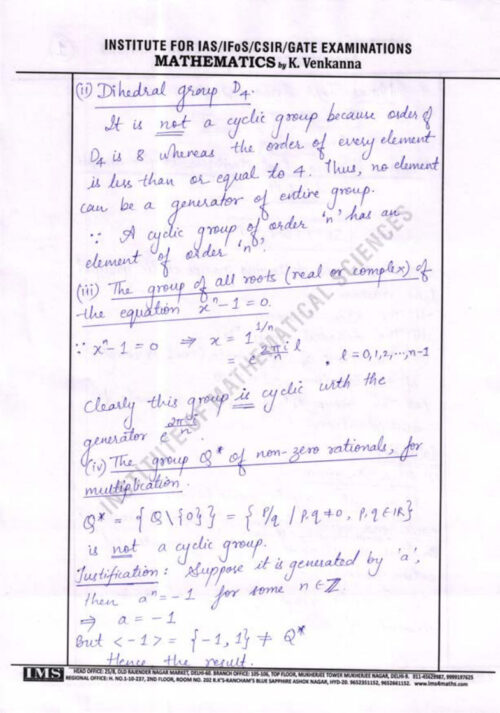 INSTITUTE FOR IAS/IFoS/CSIR/GATE EXAMINATIONS
MATHEMATICS by K. Venkanna
(ii) Dihedral group D₄.
It is not a cyclic group because order of
D₄ is 8 whereas the order of every element
is less than or equal to 4. Thus, no element
can be a generator of entire group.
∵ A cyclic group of order 'n' has an
element of order 'n'.
(iii) The group of all roots (real or complex) of
the equation xⁿ-1=0.
∵ xⁿ-1=0 ⇒ x = 1^{1/n}
= e^{\frac{2π}{n} i l} l = 0,1,2,...,n-1
Clearly this group is cyclic with the
generator e^{\frac{2π}{n} i}.
(iv) The group Q* of non-zero rationals, for
multiplication.
Q* = {Q\{0}} = {P/q / P.q ≠ 0, P,q ∈ IR}
is not a cyclic group.
Justification: Suppose it is generated by 'a',
then aⁿ = -1 for some n ∈ ℤ.
⇒ a = -1
But <-1> = {-1, 1} ≠ Q*
Hence the result.
INSTITUTE OF MATHEMATICAL SCIENCES
IMS
HEAD OFFICE: 25/8, OLD RAJENDER NAGAR MARKET, DELHI-60. BRANCH OFFICE: 105-106, TOP FLOOR, MUKHERJEE TOWER MUKHERJEE NAGAR, DELHI-9. 011-45629987, 9999197625
REGIONAL OFFICE: H. NO.1-10-237, 2ND FLOOR, ROOM NO. 202 R.K'S-KANCHAM'S BLUE SAPPHIRE ASHOK NAGAR, HYD-20. 9652351152, 9652661152. www.ims4maths.com